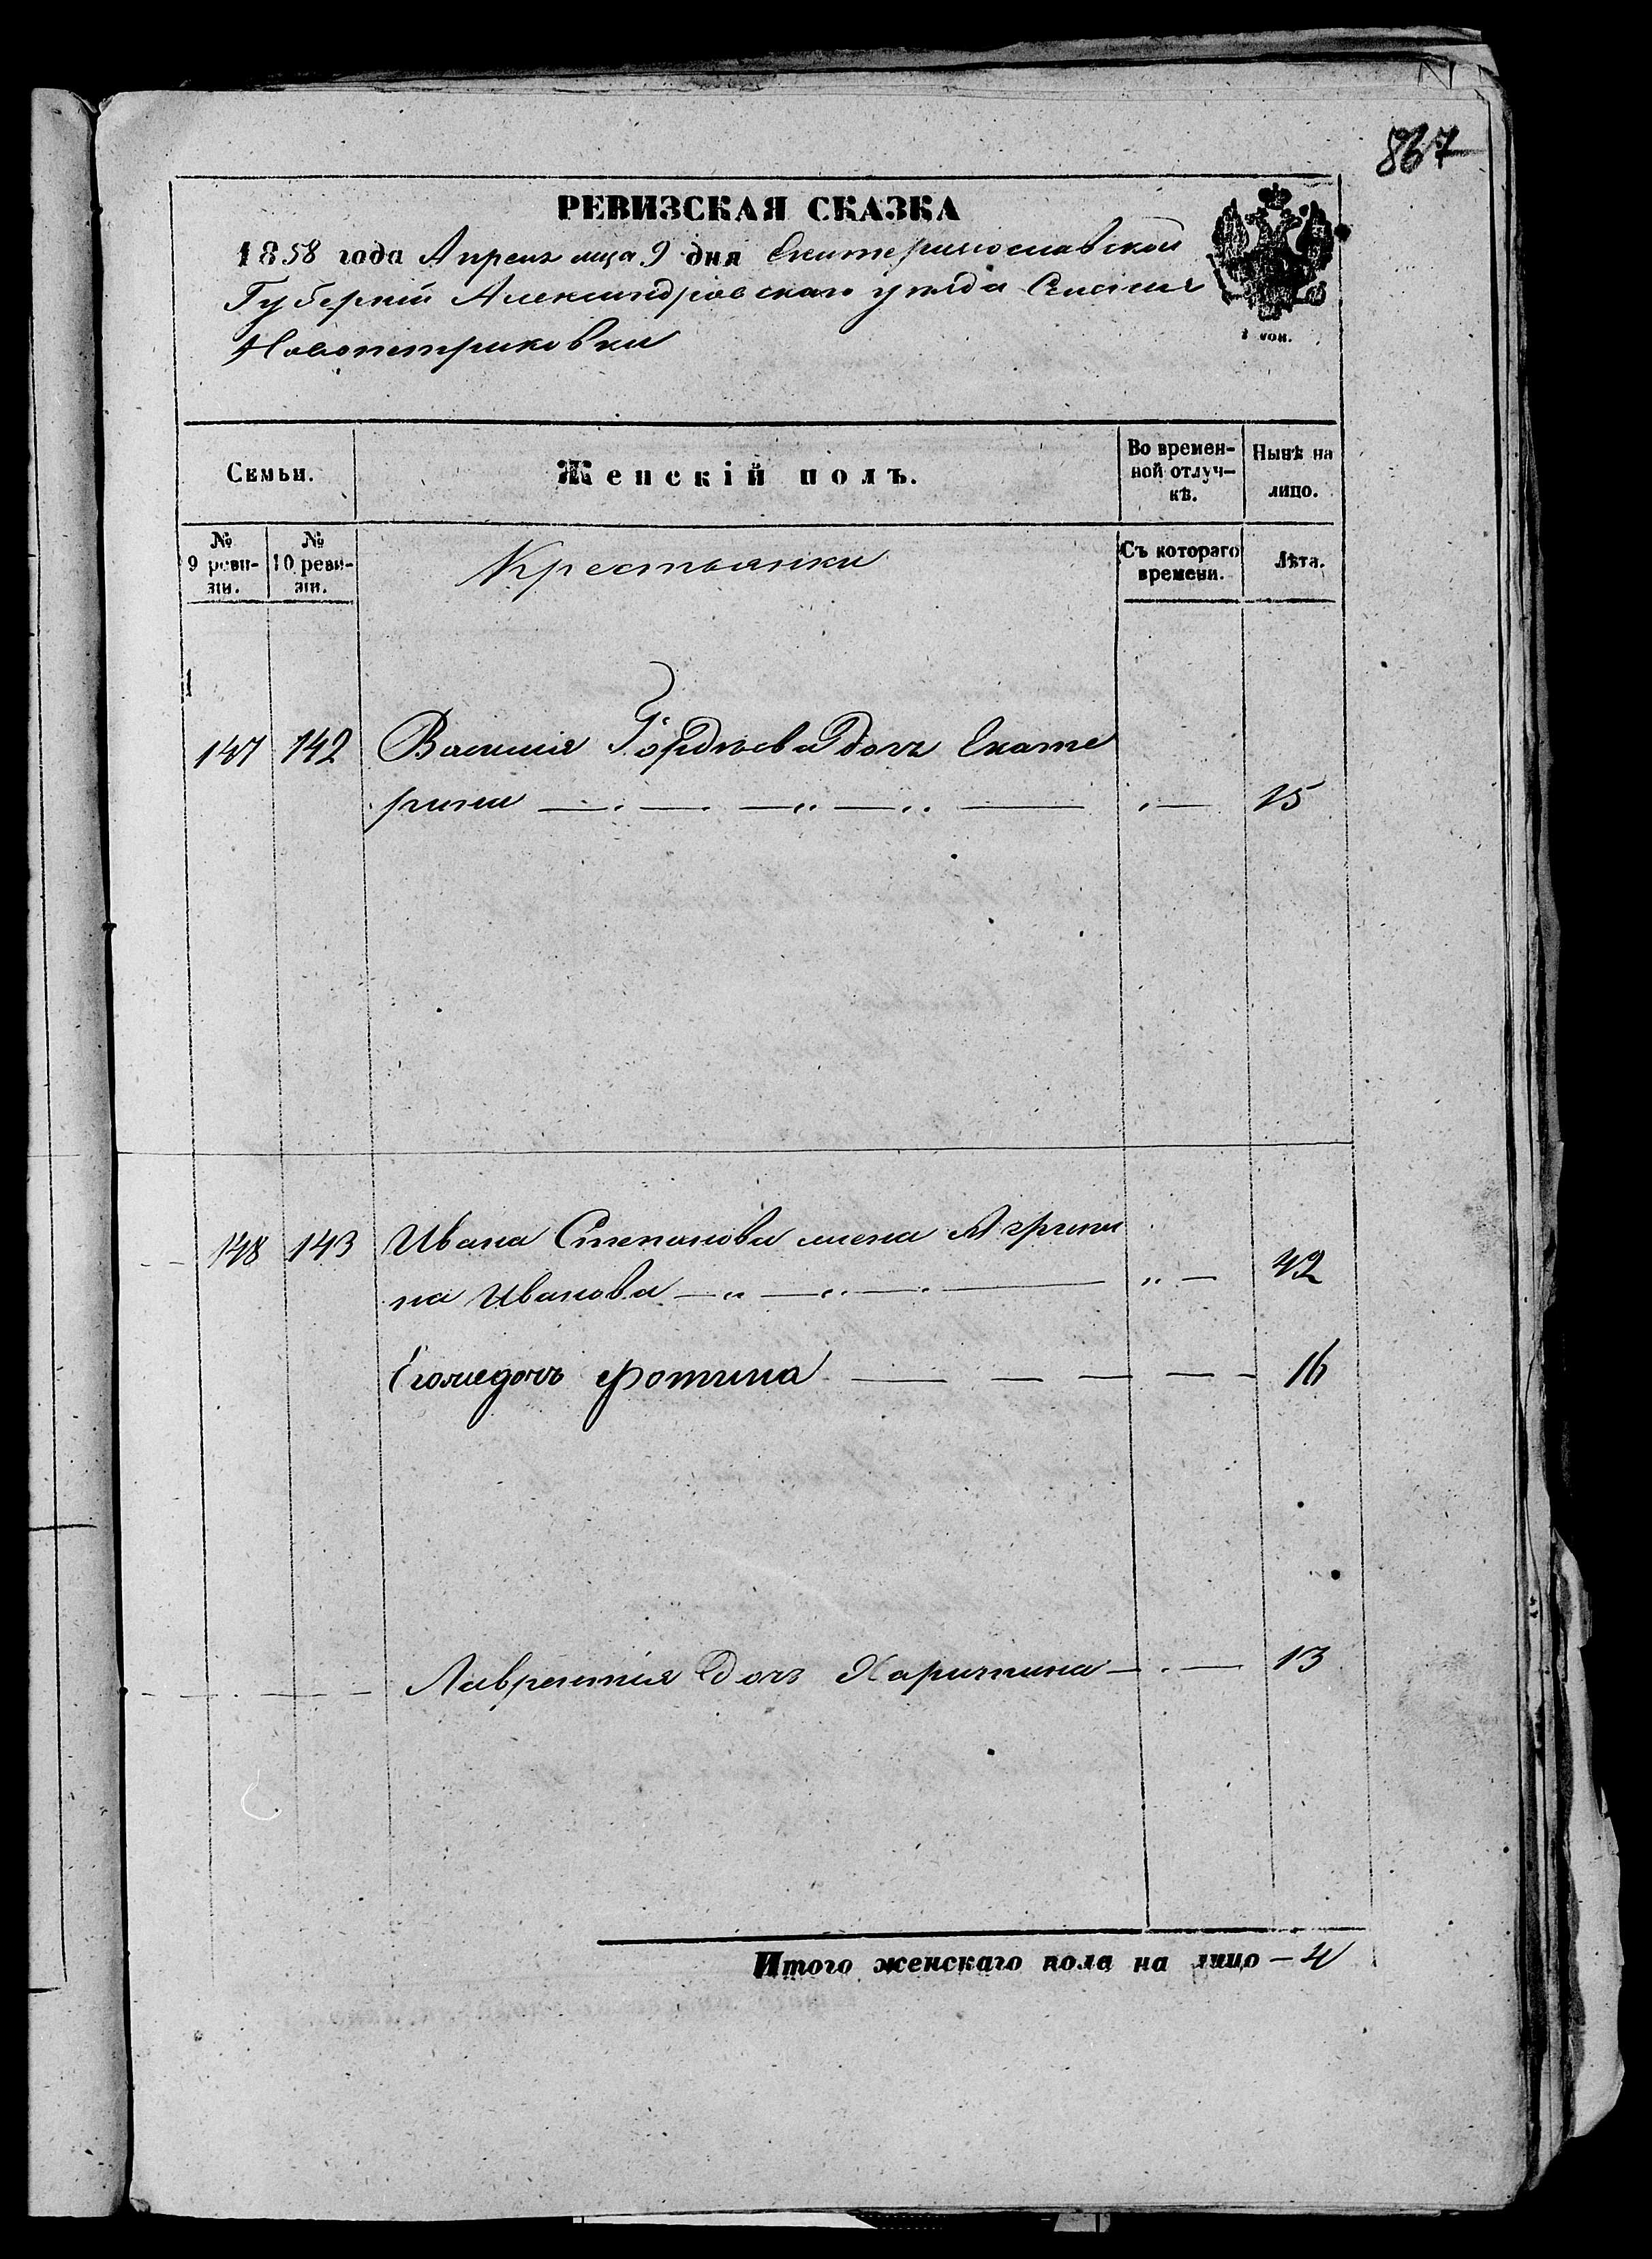 867
РЕВИЗСКАЯ СКАЗКА
1858 года Апреля мца 9 дня Екатеринославской
Губерніи Александровскаго уезда Селенія
Новопетриковки
1 коп.
Семьи.
Женскій полъ.
Во времен-
ной отлуч-
кѣ.
Нынѣ на
лицо.
№
9 реви-
зіи.
№
10 реви-
зіи.
Крестьянки
Съ котораго
времени.
Лѣта.
147 142 Василія Гордѣева дочь Екате
рина 15
148 143 Ивана Степанова жена Агрипи
на Иванова 42
Егожедочь Фотина 16
Лаврентія дочь Харитина 13
Итого женскаго пола на лицо – 4